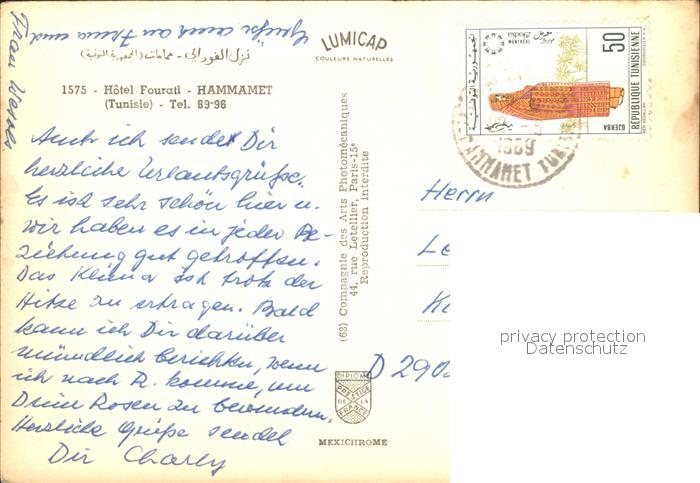 Grüße auch an Firma und
Frau
LUMICAP
COULEURS NATURELLES
نزل الفوراتي - حمامات (الجمهورية التونسية)
1575 - Hôtel Fourati - HAMMAMET
(Tunisie) - Tel. 89-96
Auch ich sende Dir
herzliche Urlaubsgrüße.
Es ist sehr schön hier u.
wir haben es in jeder Be-
ziehung gut getroffen.
Das Klima ist trotz der
Hitze zu ertragen. Bald
kann ich Dir darüber
mündlich berichten, wenn
ich nach R. komme, um
Deine Rosen zu bewundern.
Herzliche Grüße sendet
Dir Charly
(63) Compagnie des Arts Photomécaniques
44, rue Letellier, Paris-15e
Reproduction interdite
DIPLOME
PRESTIGE
DE LA
FRANCE
MEXICHROME
50
RÉPUBLIQUE TUNISIENNE
الجمهورية التونسية
MONTRÉAL
DJERBA
1969
HAMMAMET
Herrn
D 290
privacy protection
Datenschutz